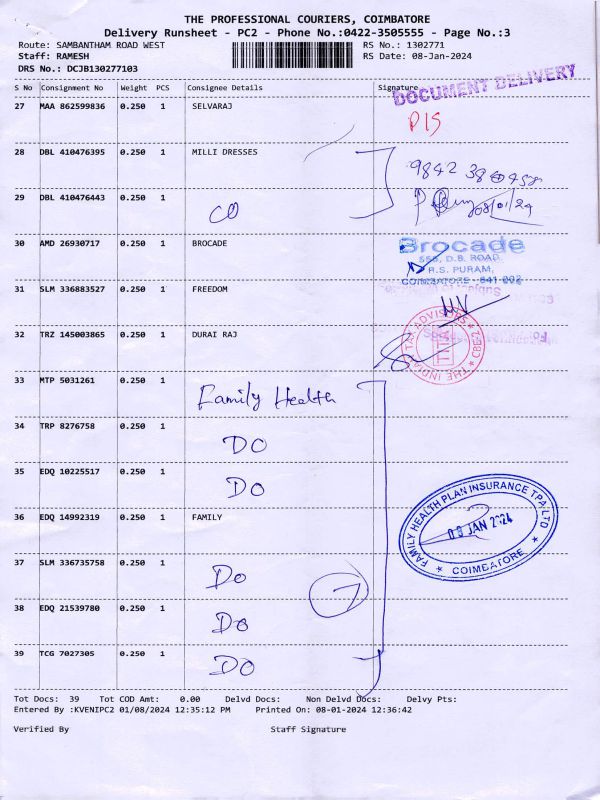 THE PROFESSIONAL COURIERS, COIMBATORE
Delivery Runsheet - PC2 - Phone No.:0422-3505555 - Page No.:3
Route: SAMBANTHAM ROAD WEST RS No.: 1302771
Staff: RAMESH RS Date: 08-Jan-2024
DRS No.: DCJB130277103
S No Consignment No Weight PCS Consignee Details Signature
DOCUMENT DELIVERY
27 MAA 862599836 0.250 1 SELVARAJ
DIS
28 DBL 410476395 0.250 1 MILLI DRESSES
9842
29 DBL 410476443 0.250 1
CO
08/01/24
30 AMD 26930717 0.250 1 BROCADE
Brocade
555, D.B. ROAD,
R.S. PURAM,
COIMBATORE - 641 002
31 SLM 336883527 0.250 1 FREEDOM
32 TRZ 145003865 0.250 1 DURAI RAJ
THE INDIA TAX ADVISORS CBE-2
33 MTP 5031261 0.250 1
Family Health
34 TRP 8276758 0.250 1
DO
35 EDQ 10225517 0.250 1
DO
36 EDQ 14992319 0.250 1 FAMILY
FAMILY HEALTH PLAN INSURANCE TPA LTD
08 JAN 2024
COIMBATORE
37 SLM 336735758 0.250 1
Do
38 EDQ 21539780 0.250 1
Do
39 TCG 7027305 0.250 1
DO
7
Tot Docs: 39 Tot COD Amt: 0.00 Delvd Docs: Non Delvd Docs: Delvy Pts:
Entered By :KVENIPC2 01/08/2024 12:35:12 PM Printed On: 08-01-2024 12:36:42
Verified By Staff Signature